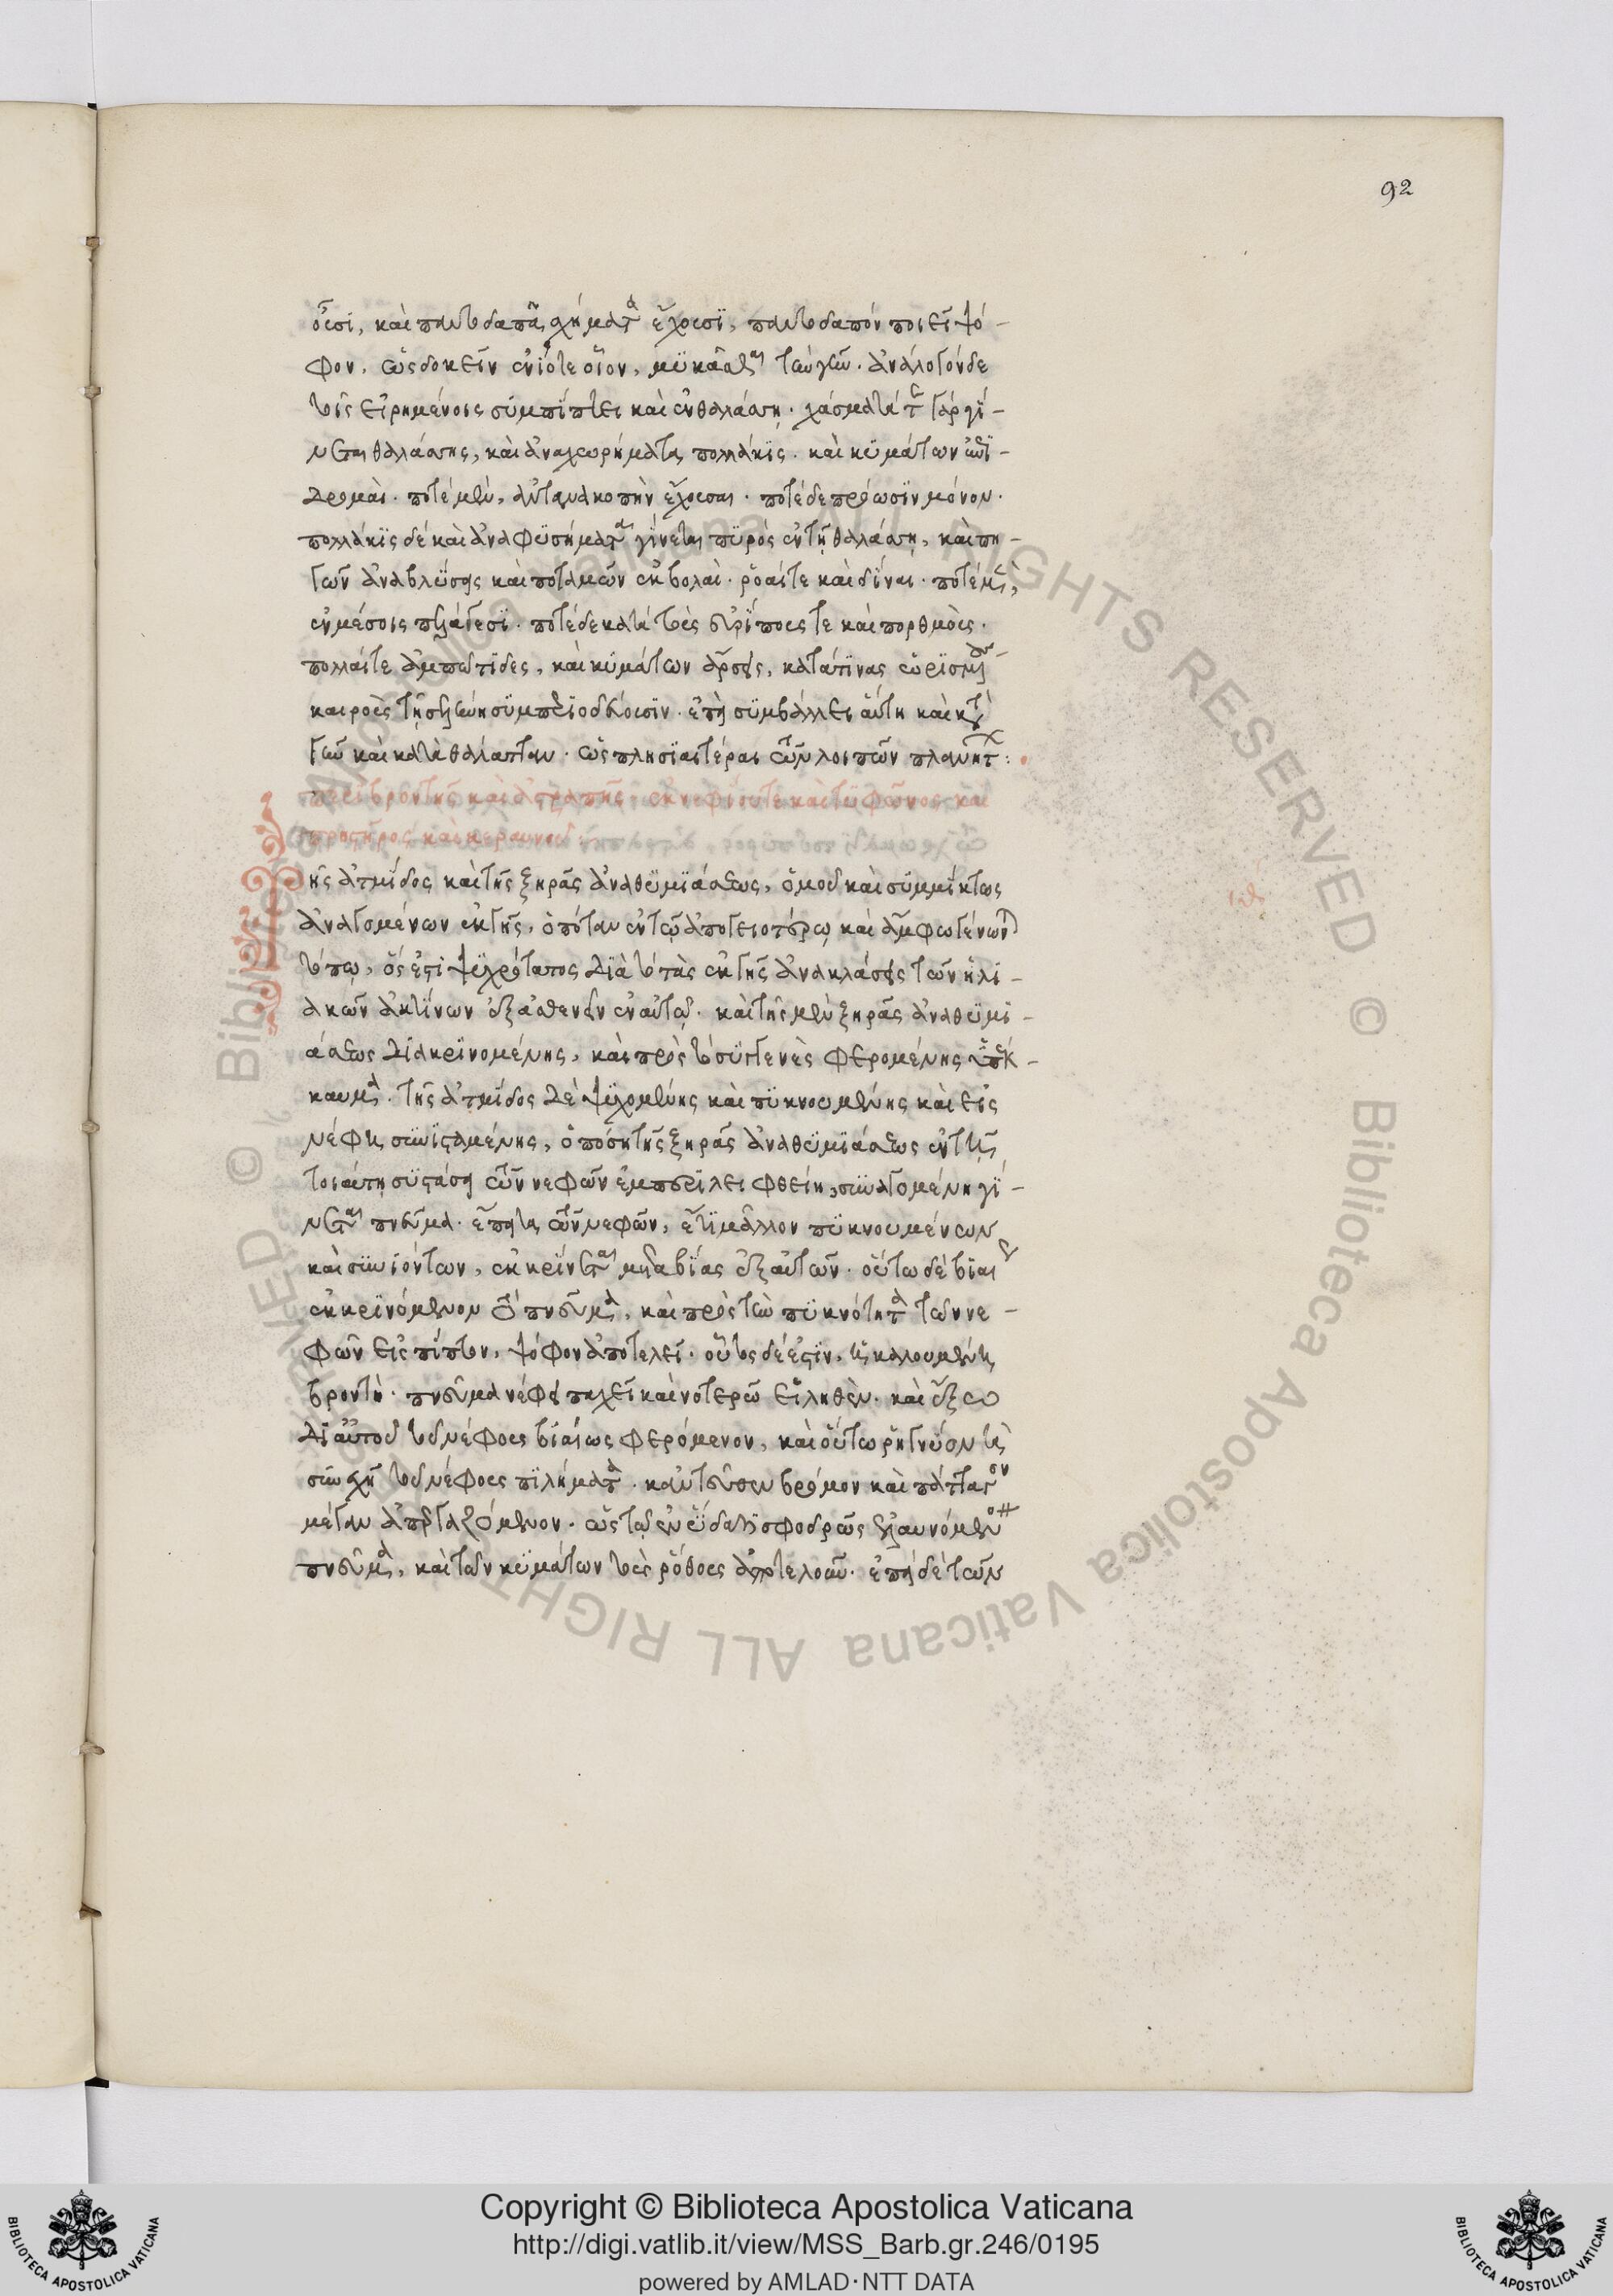 92
οῦσι, καὶ παντοδαπὰ σχήματα ἔχουσι, παντοδαπὸν ποιεῖ ψό-
φον. ὡς δοκεῖν ἐνίοτε οἷον, μυκᾶσθαι τὴν γῆν. ἀνάλογον δὲ
τοῖς εἰρημένοις συμπίπτει καὶ ἐν θαλάσσῃ. χάσματά τε γὰρ γί-
νεται θαλάσσης, καὶ ἀναχωρήματα πολλάκις. καὶ κυμάτων ἐπι-
δρομαί. ποτὲ μὲν, ἀντανακοπὴν ἔχουσαι. ποτὲ δὲ πρόωσιν μόνον.
πολλάκις δὲ καὶ ἀναφυσήματα γίνεται πυρὸς ἐν τῇ θαλάσσῃ, καὶ πη-
γῶν ἀναβλύσεις καὶ ποταμῶν ἐκβολαί. ῥοαί τε καὶ δῖναι. ποτὲ μὲν,
ἐν μέσοις πελάγεσι. ποτὲ δὲ κατὰ τοὺς εὐρίπους τε καὶ πορθμούς.
πολλαί τε ἀμπώτιδες, καὶ κυμάτων ἄρσεις, κατά τινας ὡρισμένους
καιροὺς τῇ σελήνῃ συμπεριοδεύουσιν. ἐπεὶ συμβάλλει αὕτη καὶ κατὰ
γῆν καὶ κατὰ θάλατταν. ὡς πλησιαιτέρα τῶν λοιπῶν πλανητῶν:
περὶ βροντῆς καὶ ἀστραπῆς ἐκνεφίου τε καὶ τυφῶνος καὶ
πρηστῆρος καὶ κεραυνοῦ:
Τῆς ἀτμίδος καὶ τῆς ξηρᾶς ἀναθυμιάσεως, ὁμοῦ καὶ συμμίκτως
ἀναγομένων ἐκ γῆς, ὁπόταν ἐν τῷ ἀπογειοτέρῳ καὶ ἄμφω γένωνται
τόπῳ, ὅς ἐστι ψυχρότατος διὰ τὸ τὰς ἐκ γῆς ἀνακλάσεις τῶν ἡλι-
ακῶν ἀκτίνων ἐξασθενεῖν ἐν αὐτῷ. καὶ τῆς μὲν ξηρᾶς ἀναθυμι-
άσεως διακρινομένης, καὶ πρὸς τὸ συγγενὲς φερομένης ὑπέκ-
καυμα. τῆς ἀτμίδος δὲ ψυχομένης καὶ πυκνουμένης καὶ εἰς
νέφη συνισταμένης, ὁπόση τῆς ξηρᾶς ἀναθυμιάσεως ἐν τῇ
τοιαύτῃ συστάσει τῶν νεφῶν ἐμπεριλειφθείη, συναγομένη γί-
νεται πνεῦμα. ἔπειτα τῶν νεφῶν, ἔτι μᾶλλον πυκνουμένων
καὶ συνιόντων, ἐκκρίνεται μετὰ βίας ἐξ αὐτῶν. οὕτω δὲ βίᾳ
ἐκκρινόμενον τὸ πνεῦμα, καὶ πρὸς τὴν πυκνότητα τῶν νε-
φῶν εἰσπίπτον, ψόφον ἀποτελεῖ. οὗτος δέ ἐστιν, ἡ καλουμένη
βροντή. πνεῦμα νέφει παχεῖ καὶ νοτερῷ εἰληθὲν. καὶ ἔξω
δι' αὐτοῦ τοῦ νέφους βιαίως φερόμενον, καὶ οὕτω ῥηγνύον τὰ
συνεχῆ τοῦ νέφους πιλήματα. κἀντεῦθεν βρόμον καὶ πάταγον
μέγαν ἀπεργαζόμενον. ὡς τὸ ἐν ὕδατι σφοδρῶς ἐλαυνόμενον
πνεῦμα, καὶ τῶν κυμάτων τοὺς ῥόθους ἀποτελοῦν. ἐπεὶ δὲ τῶν
Copyright © Biblioteca Apostolica Vaticana
http://digi.vatlib.it/view/MSS_Barb.gr.246/0195
powered by AMLAD·NTT DATA